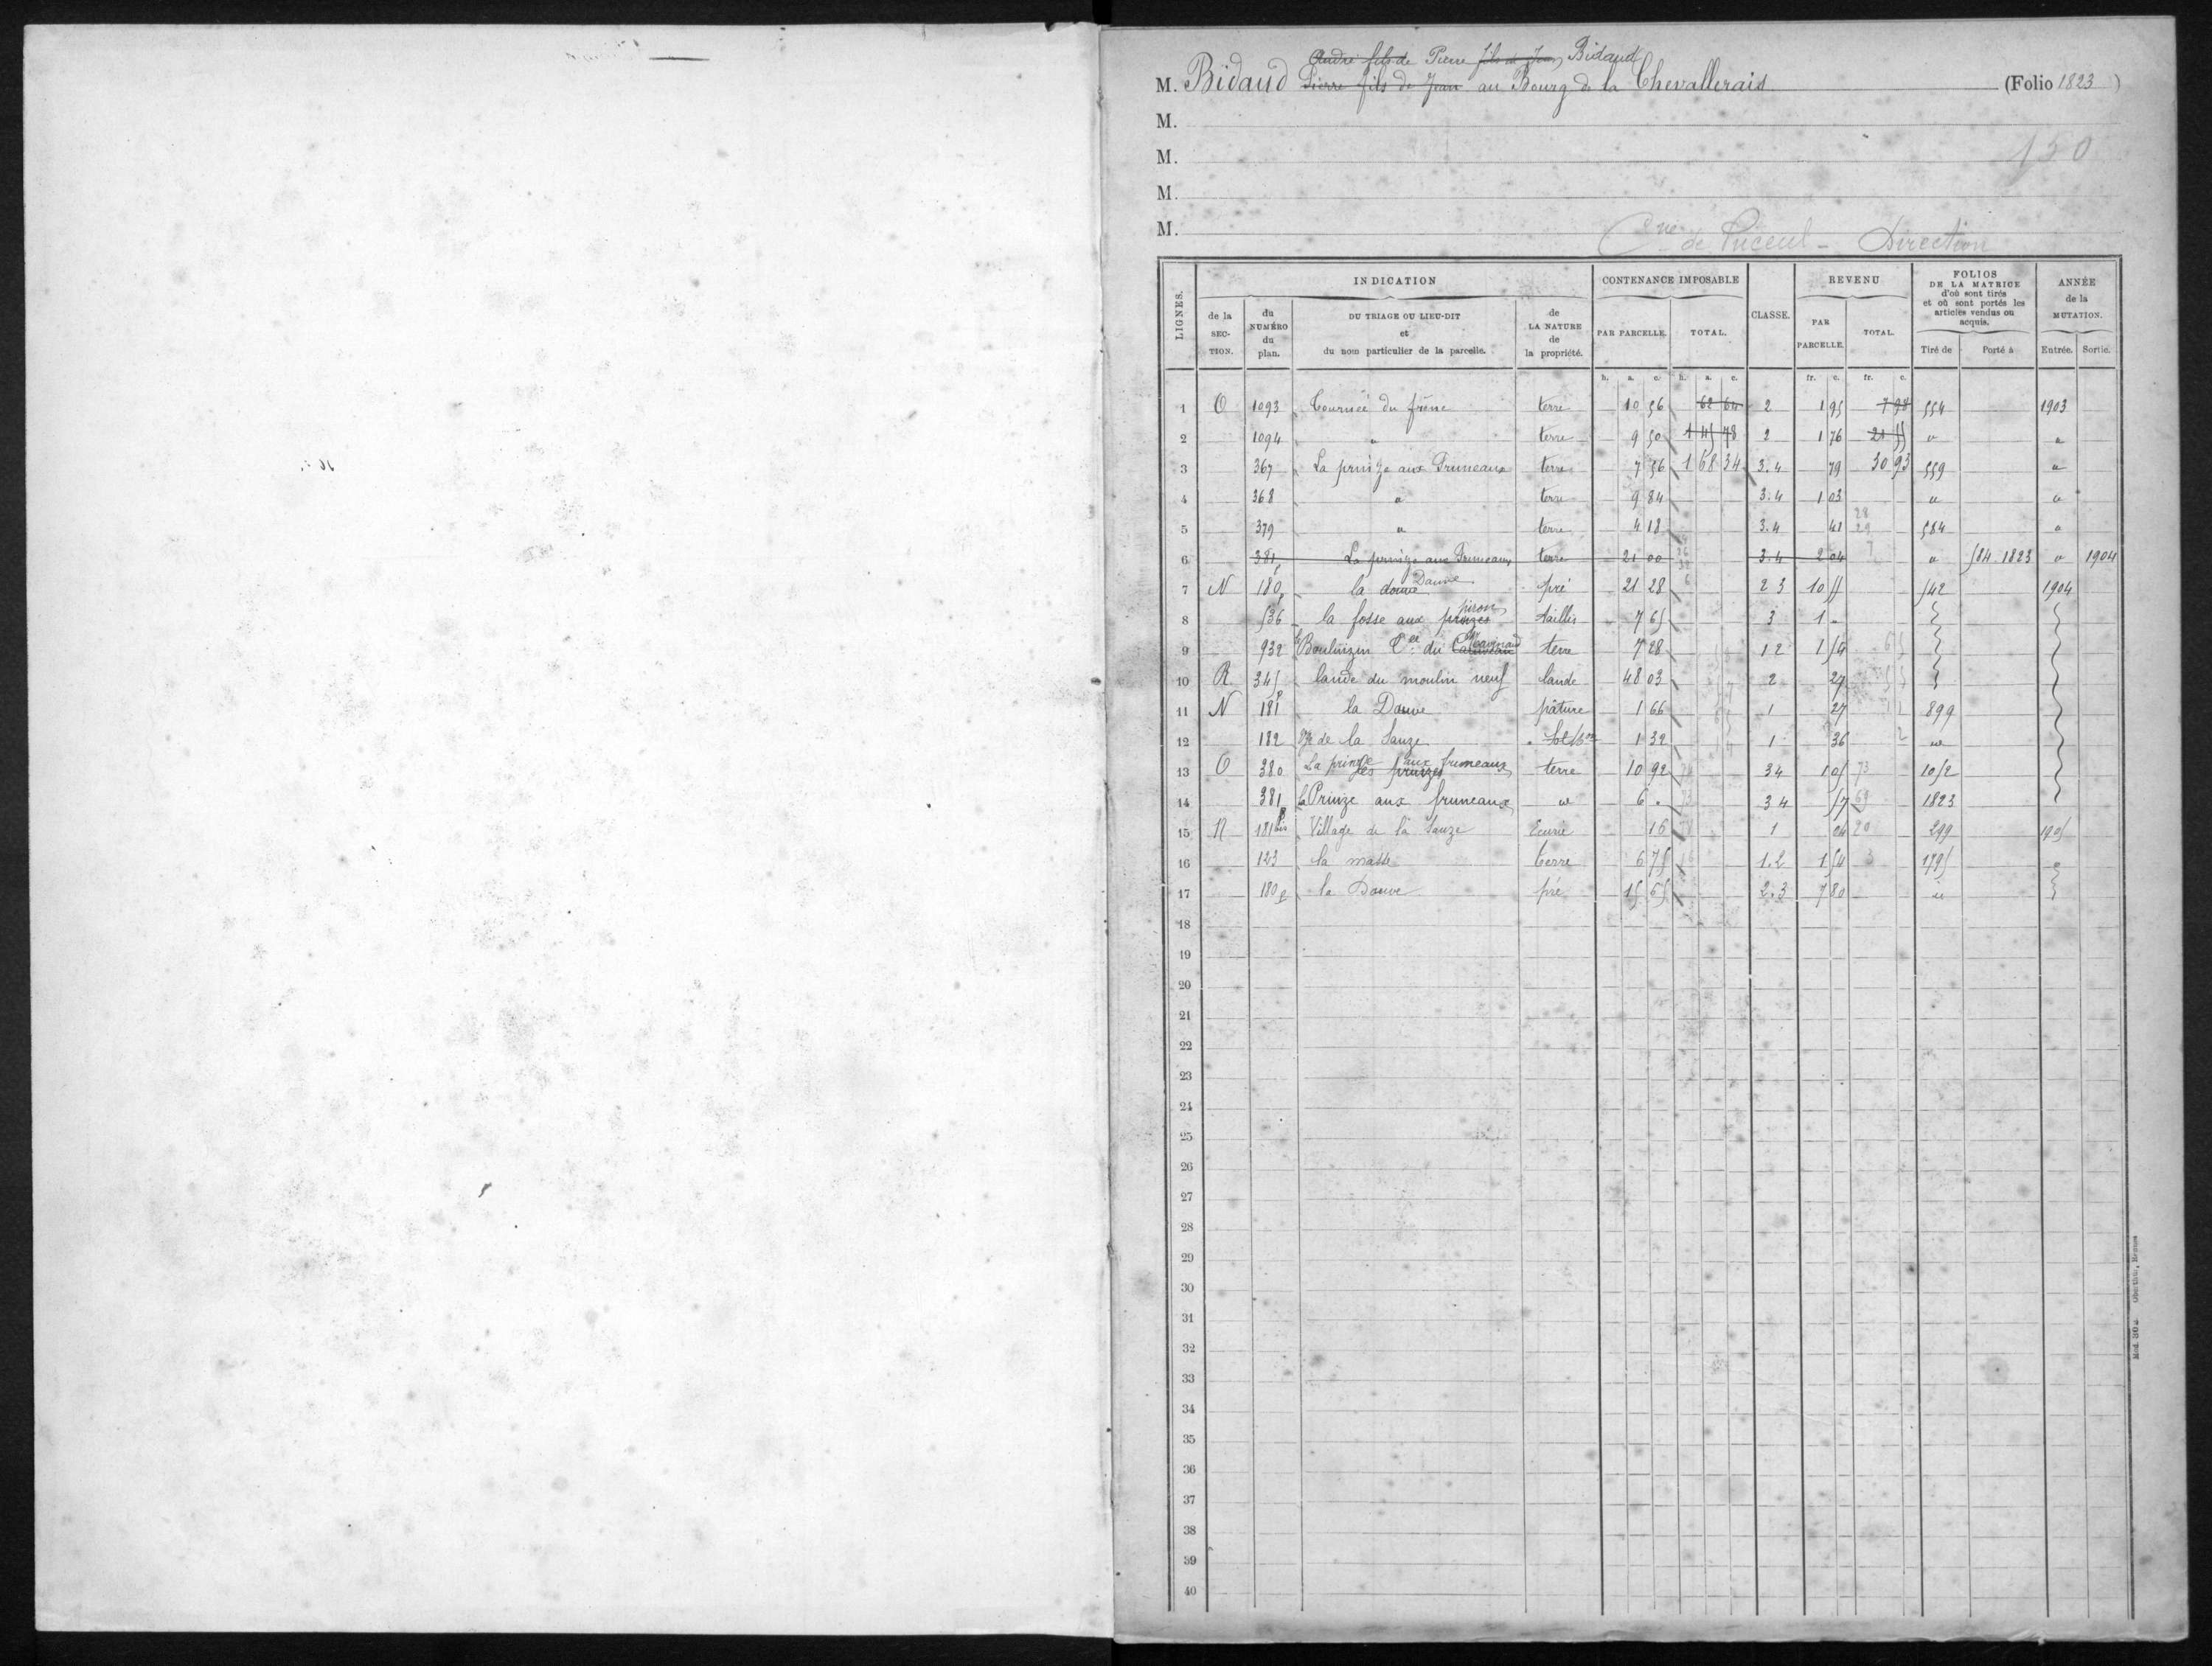 André fils de Pierre fils de Jean Bidaud
M. Bidaud Pierre fils de Jean au Bourg de la Chevallerais (Folio 1823)
M.
M. 150
M.
M.
Cne de Puceul - Direction
LIGNES. INDICATION CONTENANCE IMPOSABLE CLASSE. REVENU FOLIOS DE LA MATRICE d'où sont tirés et où sont portés les articles vendus ou acquis. ANNÉE de la MUTATION.
de la SECTION. du NUMÉRO du plan. DU TRIAGE OU LIEU-DIT et du nom particulier de la parcelle. de LA NATURE de la propriété. PAR PARCELLE. TOTAL. PAR PARCELLE. TOTAL. Tiré de Porté à Entrée. Sortie.
h. a. c. h. a. c. fr. c. fr. c.
1 O 1093 Tournée du frêne terre 10 56 62 64 2 1 95 7 98 554 1903
2 1094 " terre 9 50 1 45 78 2 1 76 21 55 " "
3 367 La prinze aux Pruneaux terre 7 56 1 68 34 3.4 79 30 93 559 "
4 368 " terre 9 84 3.4 1 03 " "
5 379 " terre 4 18 3.4 41 584 "
6 381p La prinze aux Pruneaux terre 21 00 3.4 2 04 " 584.1823 " 1904
7 N 180p la douve Dauve pré 21 28 2 3 10 55 542 1904
8 536 la fosse aux piron taillis 7 65 3 1 "
9 932 le Boulinzin terre 7 28 1 2 1 54
10 R 345p lande du moulin neuf lande 48 03 2 27
11 N 181 la Dauve pâture 1 66 1 27 899
12 182 de la Sauze Sol 1 32 1 36 "
13 O 380 La prinze aux pruneaux terre 10 92 3 4 1 05 1052
14 381p la Prinze aux pruneaux " 6 " 3 4 57 1823
15 N 181bis Village de la Sauze Ecurie 16 1 04 299 1905
16 123 la masse terre 6 75 1.2 1 54 1795 "
17 180p la Douve pré 15 65 2.3 7 80 "
18
19
20
21
22
23
24
25
26
27
28
29
30
31
32
33
34
35
36
37
38
39
40
Mod. 302 Oberthür, Rennes